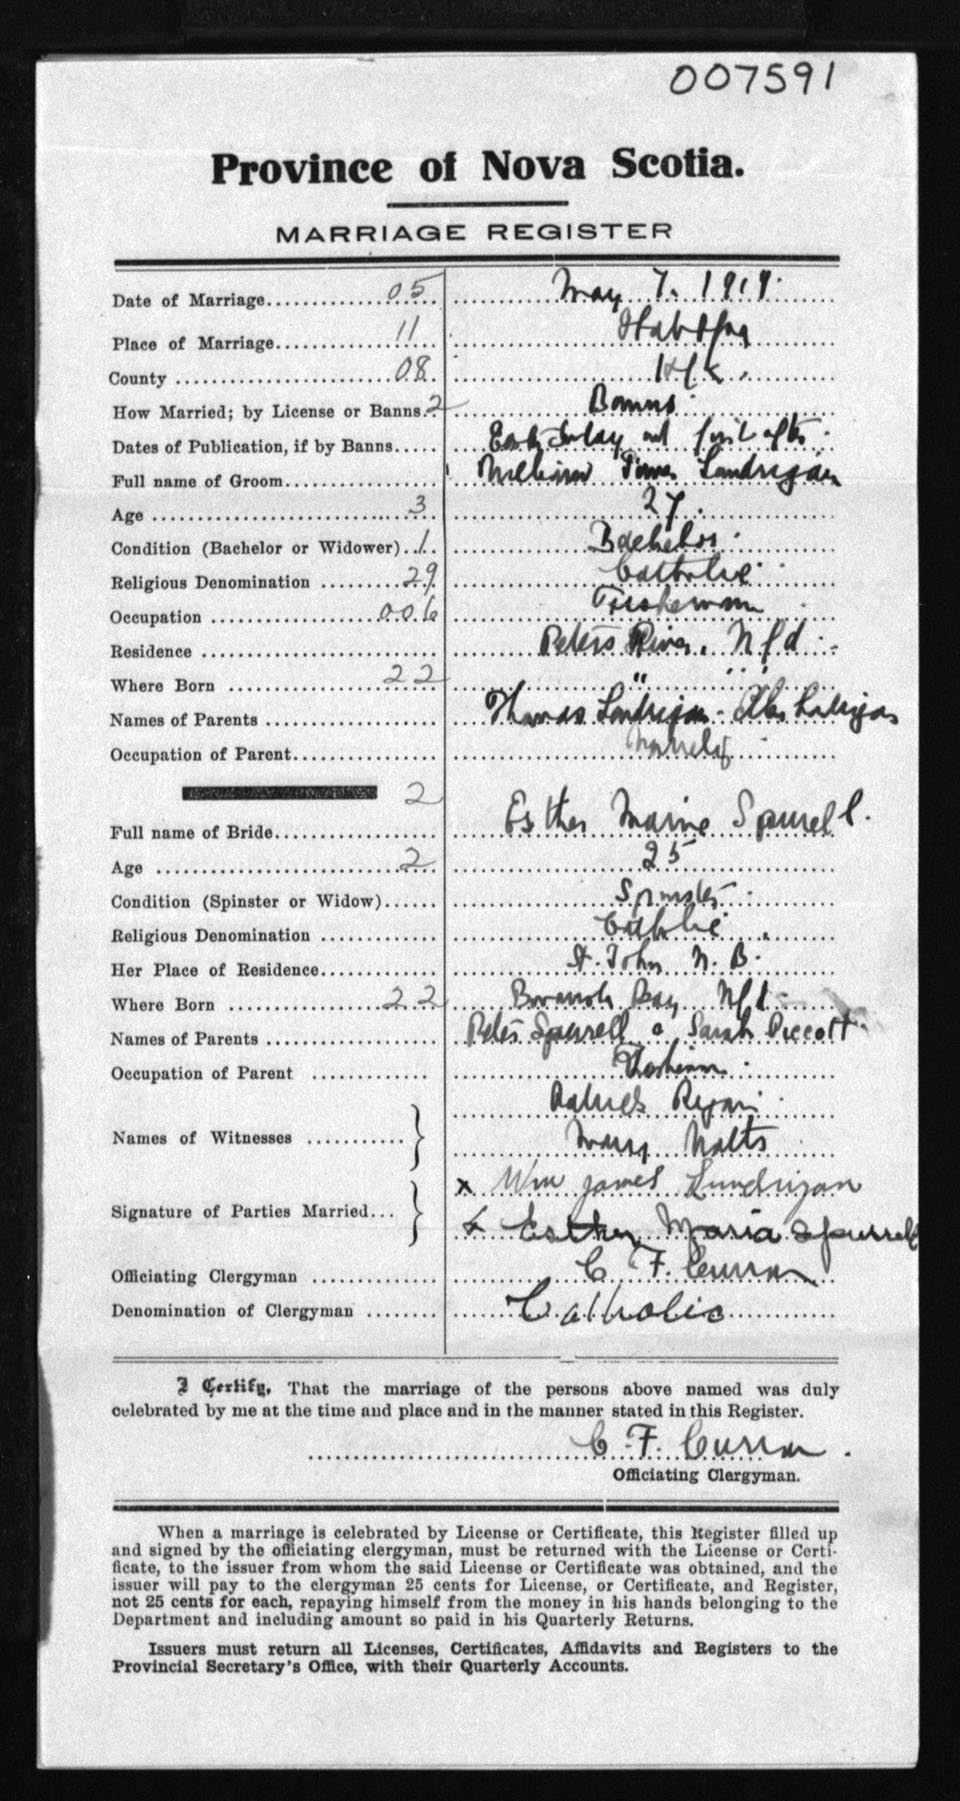 007591
Province of Nova Scotia.
MARRIAGE REGISTER
Date of Marriage 05 May 7. 1919
Place of Marriage 11
County 08 Hfx.
How Married; by License or Banns 2 Banns
Dates of Publication, if by Banns
Full name of Groom William James Landrigan
Age 3 27.
Condition (Bachelor or Widower) 1 Bachelor
Religious Denomination 29 Catholic
Occupation 006 Fisherman
Residence Peters River, Nfd.
Where Born 22 " "
Names of Parents Thomas Landrigan
Occupation of Parent
2
Full name of Bride Esther Marie Spurell.
Age 2 25
Condition (Spinster or Widow) Spinster
Religious Denomination Catholic
Her Place of Residence St. John N. B.
Where Born 22 Bay Nfd
Names of Parents Peter Spurrell Sarah Piccott
Occupation of Parent
Names of Witnesses Patrick Ryan
Mary
Signature of Parties Married x Wm James Lundrigan
x Esther Maria Spurrell
Officiating Clergyman C. F. Curran
Denomination of Clergyman Catholic
I Certify, That the marriage of the persons above named was duly
celebrated by me at the time and place and in the manner stated in this Register.
C. F. Curran.
Officiating Clergyman.
When a marriage is celebrated by License or Certificate, this Register filled up
and signed by the officiating clergyman, must be returned with the License or Certi-
ficate, to the issuer from whom the said License or Certificate was obtained, and the
issuer will pay to the clergyman 25 cents for License, or Certificate, and Register,
not 25 cents for each, repaying himself from the money in his hands belonging to the
Department and including amount so paid in his Quarterly Returns.
Issuers must return all Licenses, Certificates, Affidavits and Registers to the
Provincial Secretary's Office, with their Quarterly Accounts.